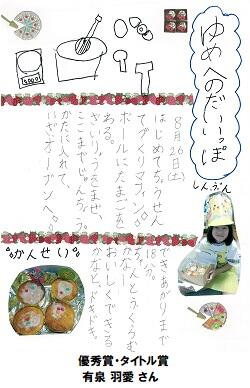 ゆめへのだいいっぽ
しんぶん
8月26日(土)
はじめてちょうせん
てづくりマフィン。
ボールにたまごを
ある。
さいりょうをませ、
ここまでじゅんちょう。
かたに入れて、
いざオーブンへ。
できあがりまで
18分。
ちゃんとふくらむ
かなー
おいしくできる
かなと、ドキドキ。
かんせい
優秀賞・タイトル賞
有泉 羽愛 さん